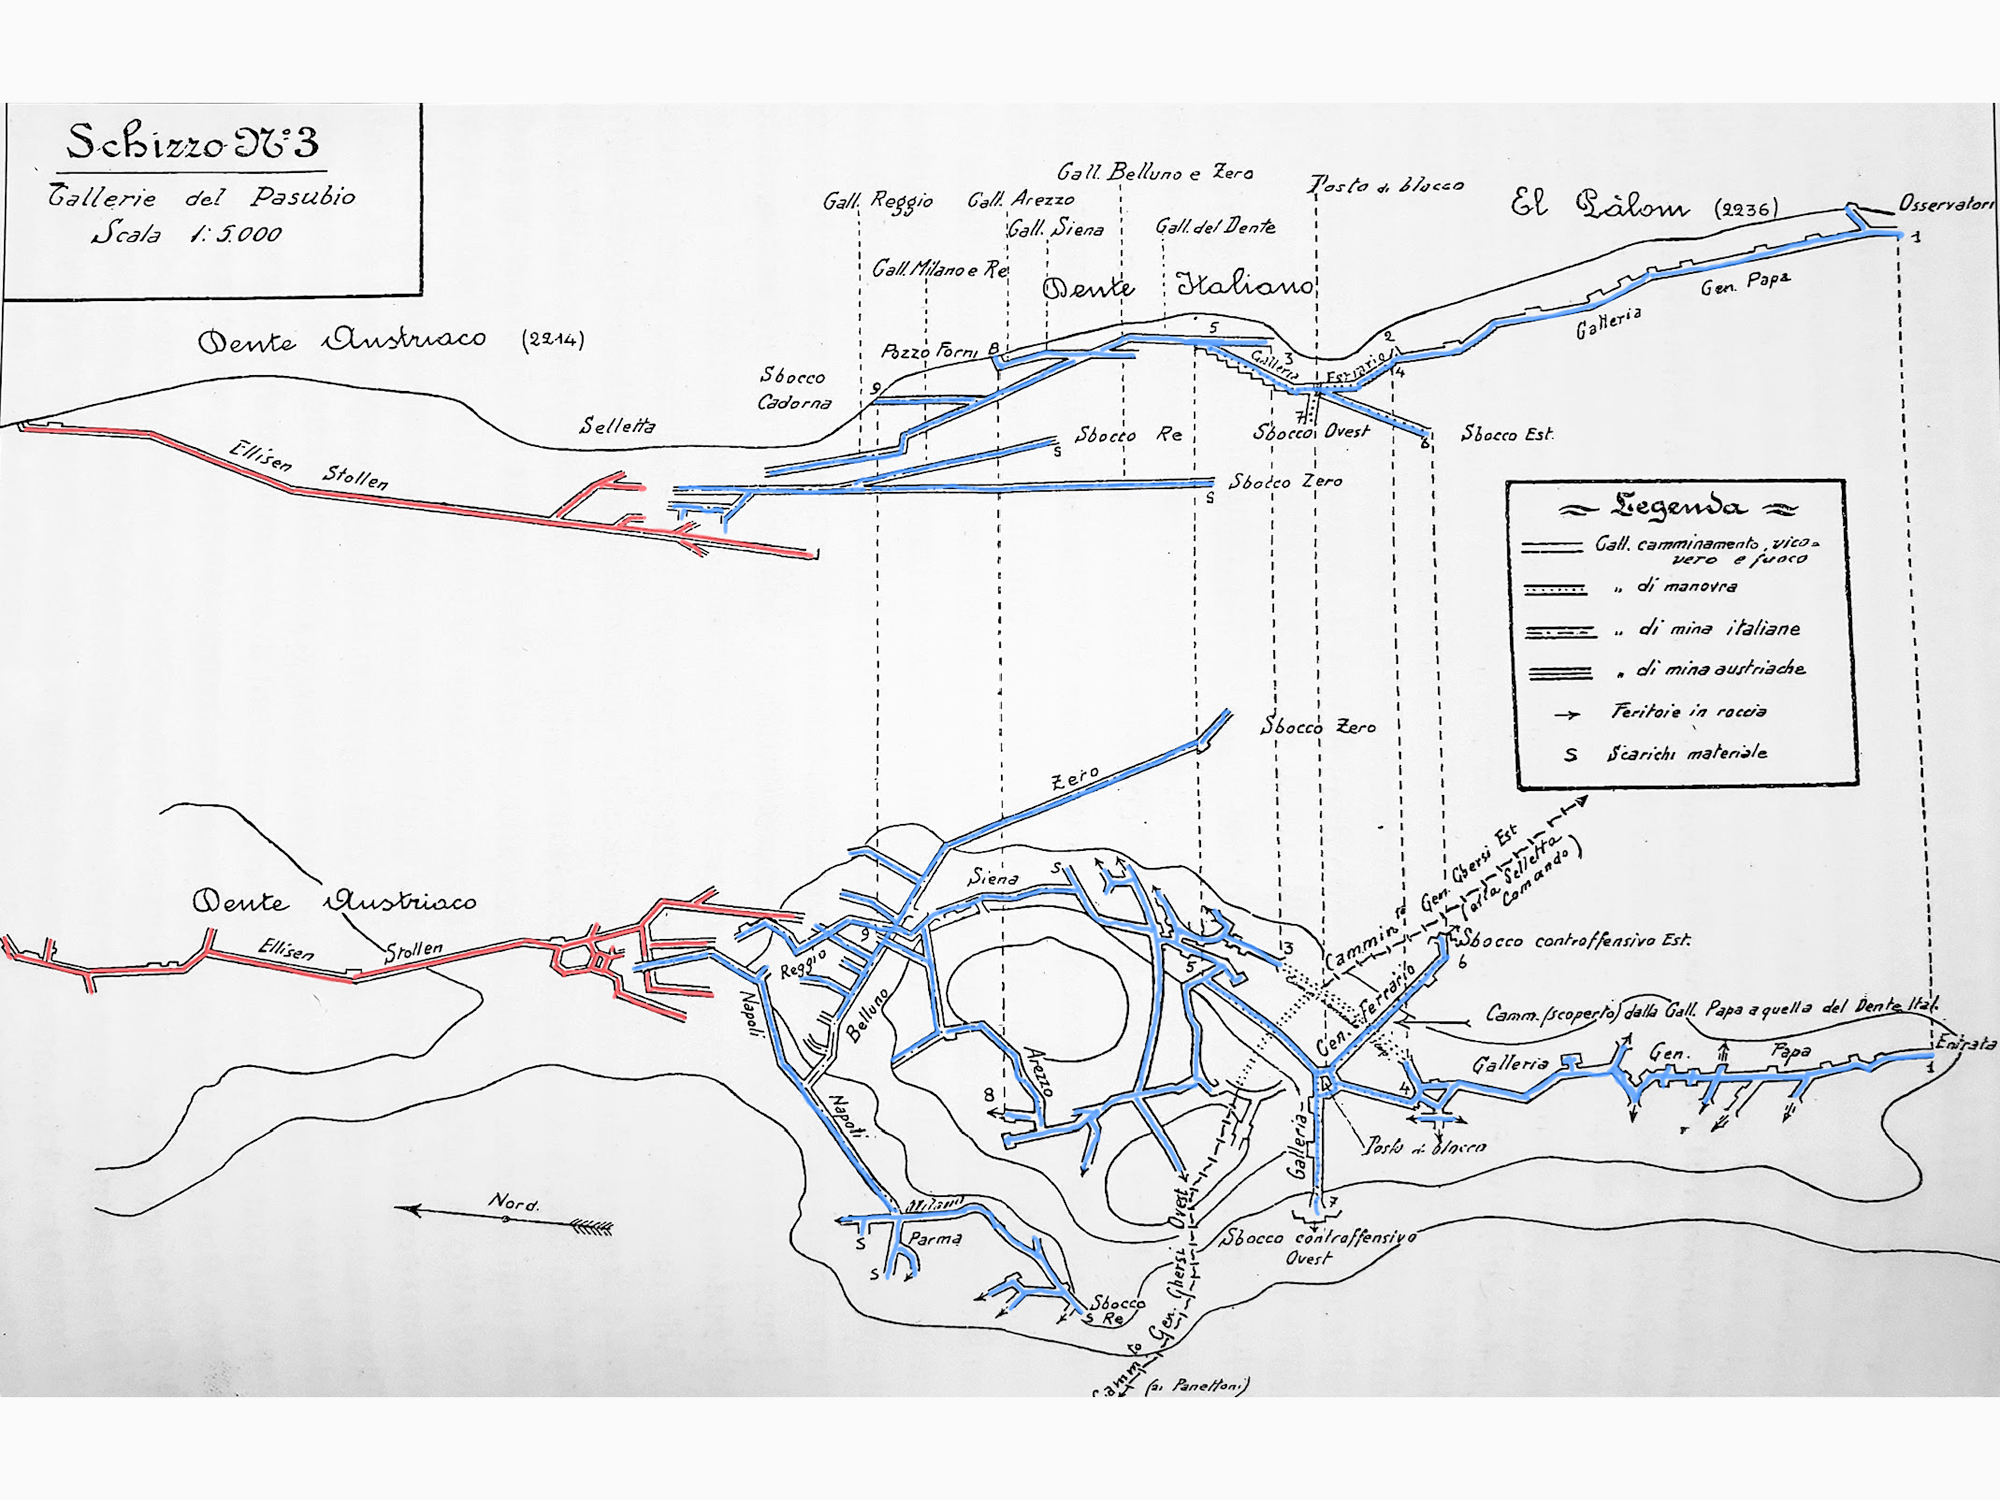 Schizzo N.º 3
Gallerie del Pasubio
Scala 1:5.000
Gall. Belluno e Zero
Posto di blocco
Gall. Reggio
Gall. Arezzo
El Pàlom (2236)
Osservatori
Gall. Siena
Gall. del Dente
1
Gall. Milano e Re
Dente Italiano
Gen. Papa
Galleria
Dente Austriaco (2214)
Pozzo Forni 8
5
2
3
Galleria
Ferrario
4
Sbocco
Cadorna
9
Selletta
7
Sbocco Re
S
Sbocco Ovest
6
Sbocco Est.
Ellisen Stollen
Sbocco Zero
S
Legenda
Gall. camminamento, rico-
vero e fuoco
„ di manovra
„ di mina italiane
„ di mina austriache
Feritoie in roccia
S Scarichi materiale
Sbocco Zero
Zero
Gen. Ghersi Est
(alla Selletta
Comando)
Cammin.to
Siena
S
Dente Austriaco
Ellisen Stollen
9
Reggio
5
3
Sbocco controffensivo Est.
6
Gen. Ferrario
Camm. (scoperto) dalla Gall. Papa a quella del Dente Ital.
Napoli
Belluno
Arezzo
8
Galleria Gen. Papa
Entrata
1
4
Napoli
Galleria
Posto di blocco
Nord.
Milano
Parma
S
S
7
Sbocco controffensivo
Ovest
Sbocco
S Re
Camm.to Gen. Ghersi Ovest
(ai Panettoni)